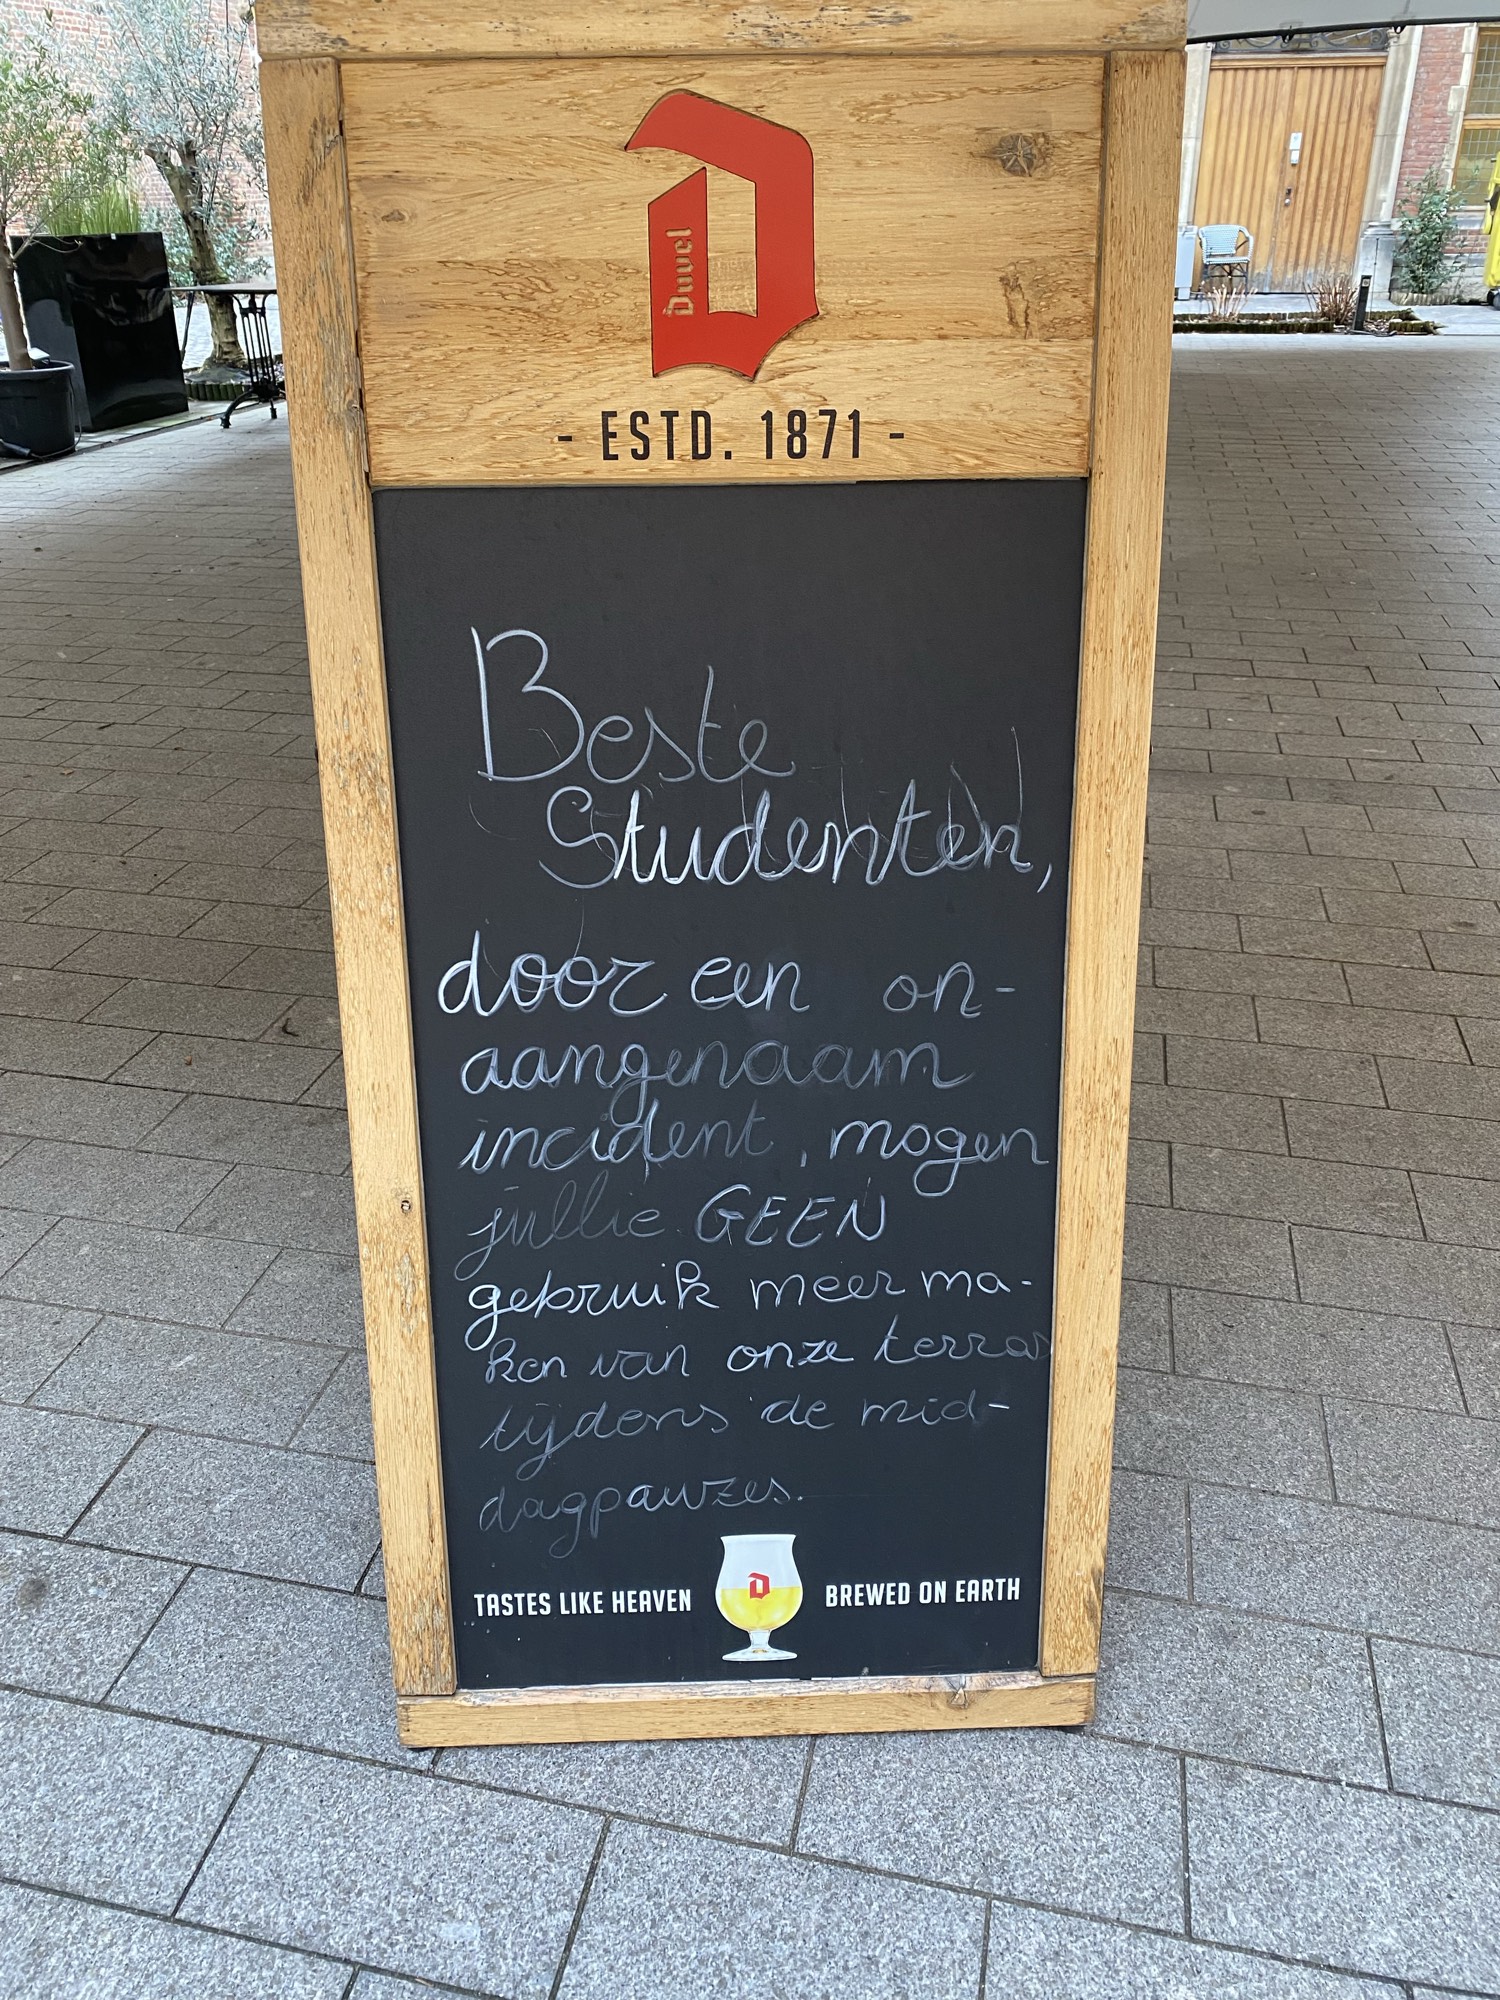 Duvel
- ESTD. 1871 -
Beste
Studenten,
door een on-
aangenaam
incident, mogen
jullie GEEN
gebruik meer ma-
ken van onze terras
tijdens de mid-
dagpauzes.
TASTES LIKE HEAVEN BREWED ON EARTH